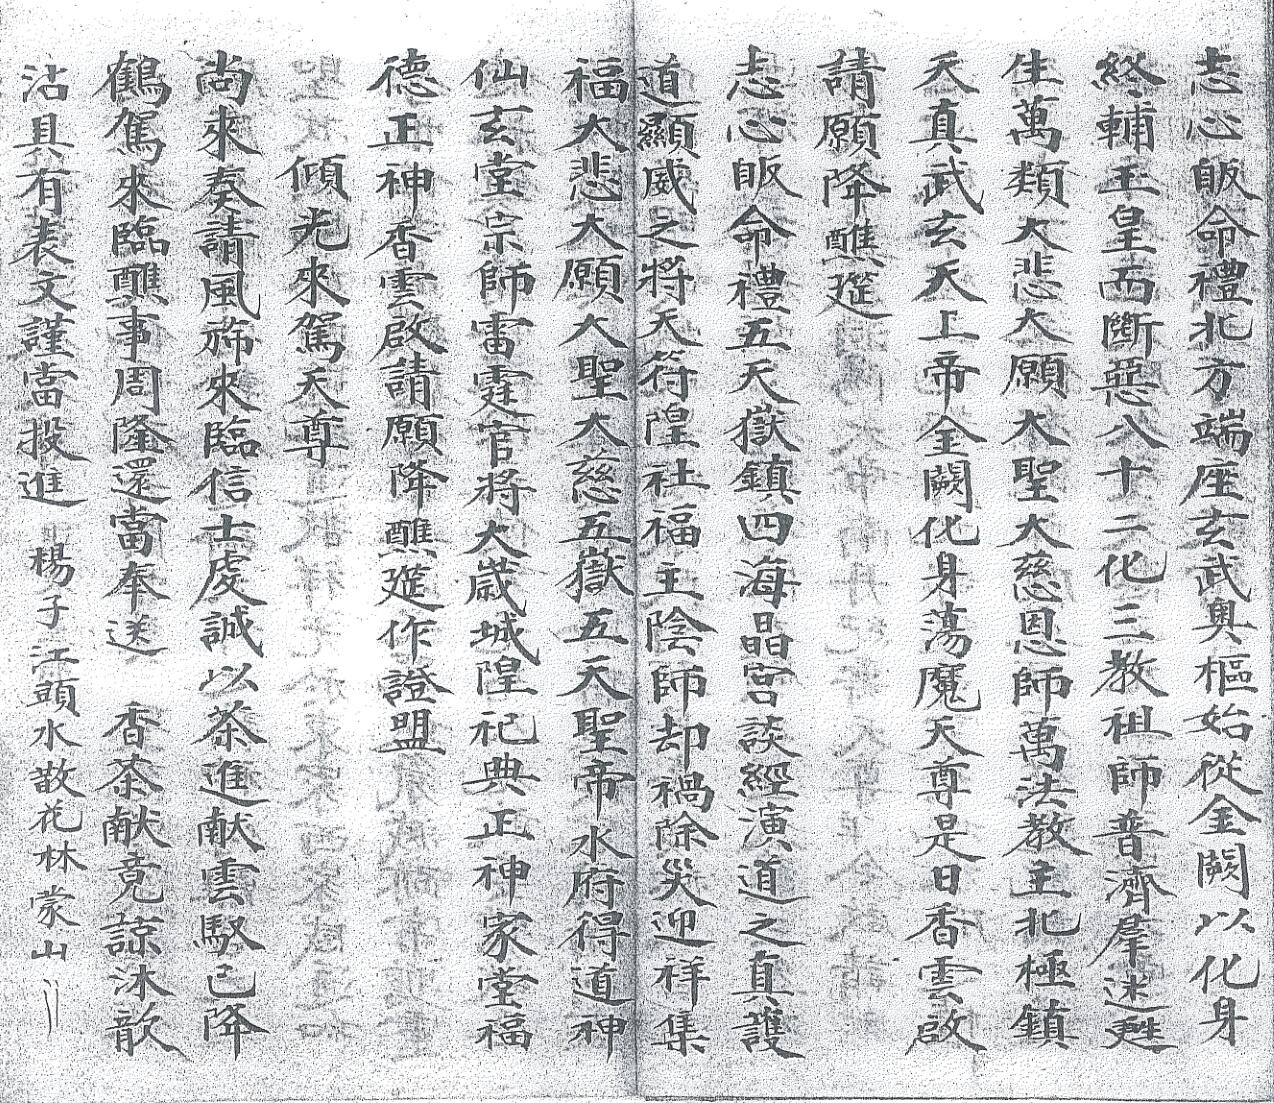 志心皈命禮北方端座玄武奥樞始從金闕以化身
終輔玉皇而斷惡八十二化三教祖師普濟羣迷甦
生萬類大悲大願大聖大慈恩師萬法教主北極鎮
天真武玄天上帝全闕化身蕩魔天尊是日香雲啟
請願降醮筵
志心皈命禮五天嶽鎮四海晶宮談經演道之真護
道顯威之將天符隍社福主陰師却禍除災迎祥集
福大悲大願大聖大慈五嶽五天聖帝水府得道神
仙玄堂宗師雷霆官將大歲城隍祀典正神家堂福
德正神香雲啟請願降醮筵作證盟
傾光來駕天尊
尚來奏請風旆來臨信士虔誠以茶進献雲馭已降
鶴駕來臨醮事周隆還當奉送 香茶献竟諒沐歆
沾具有表文謹當投進 楊子江頭水散花林蒙山